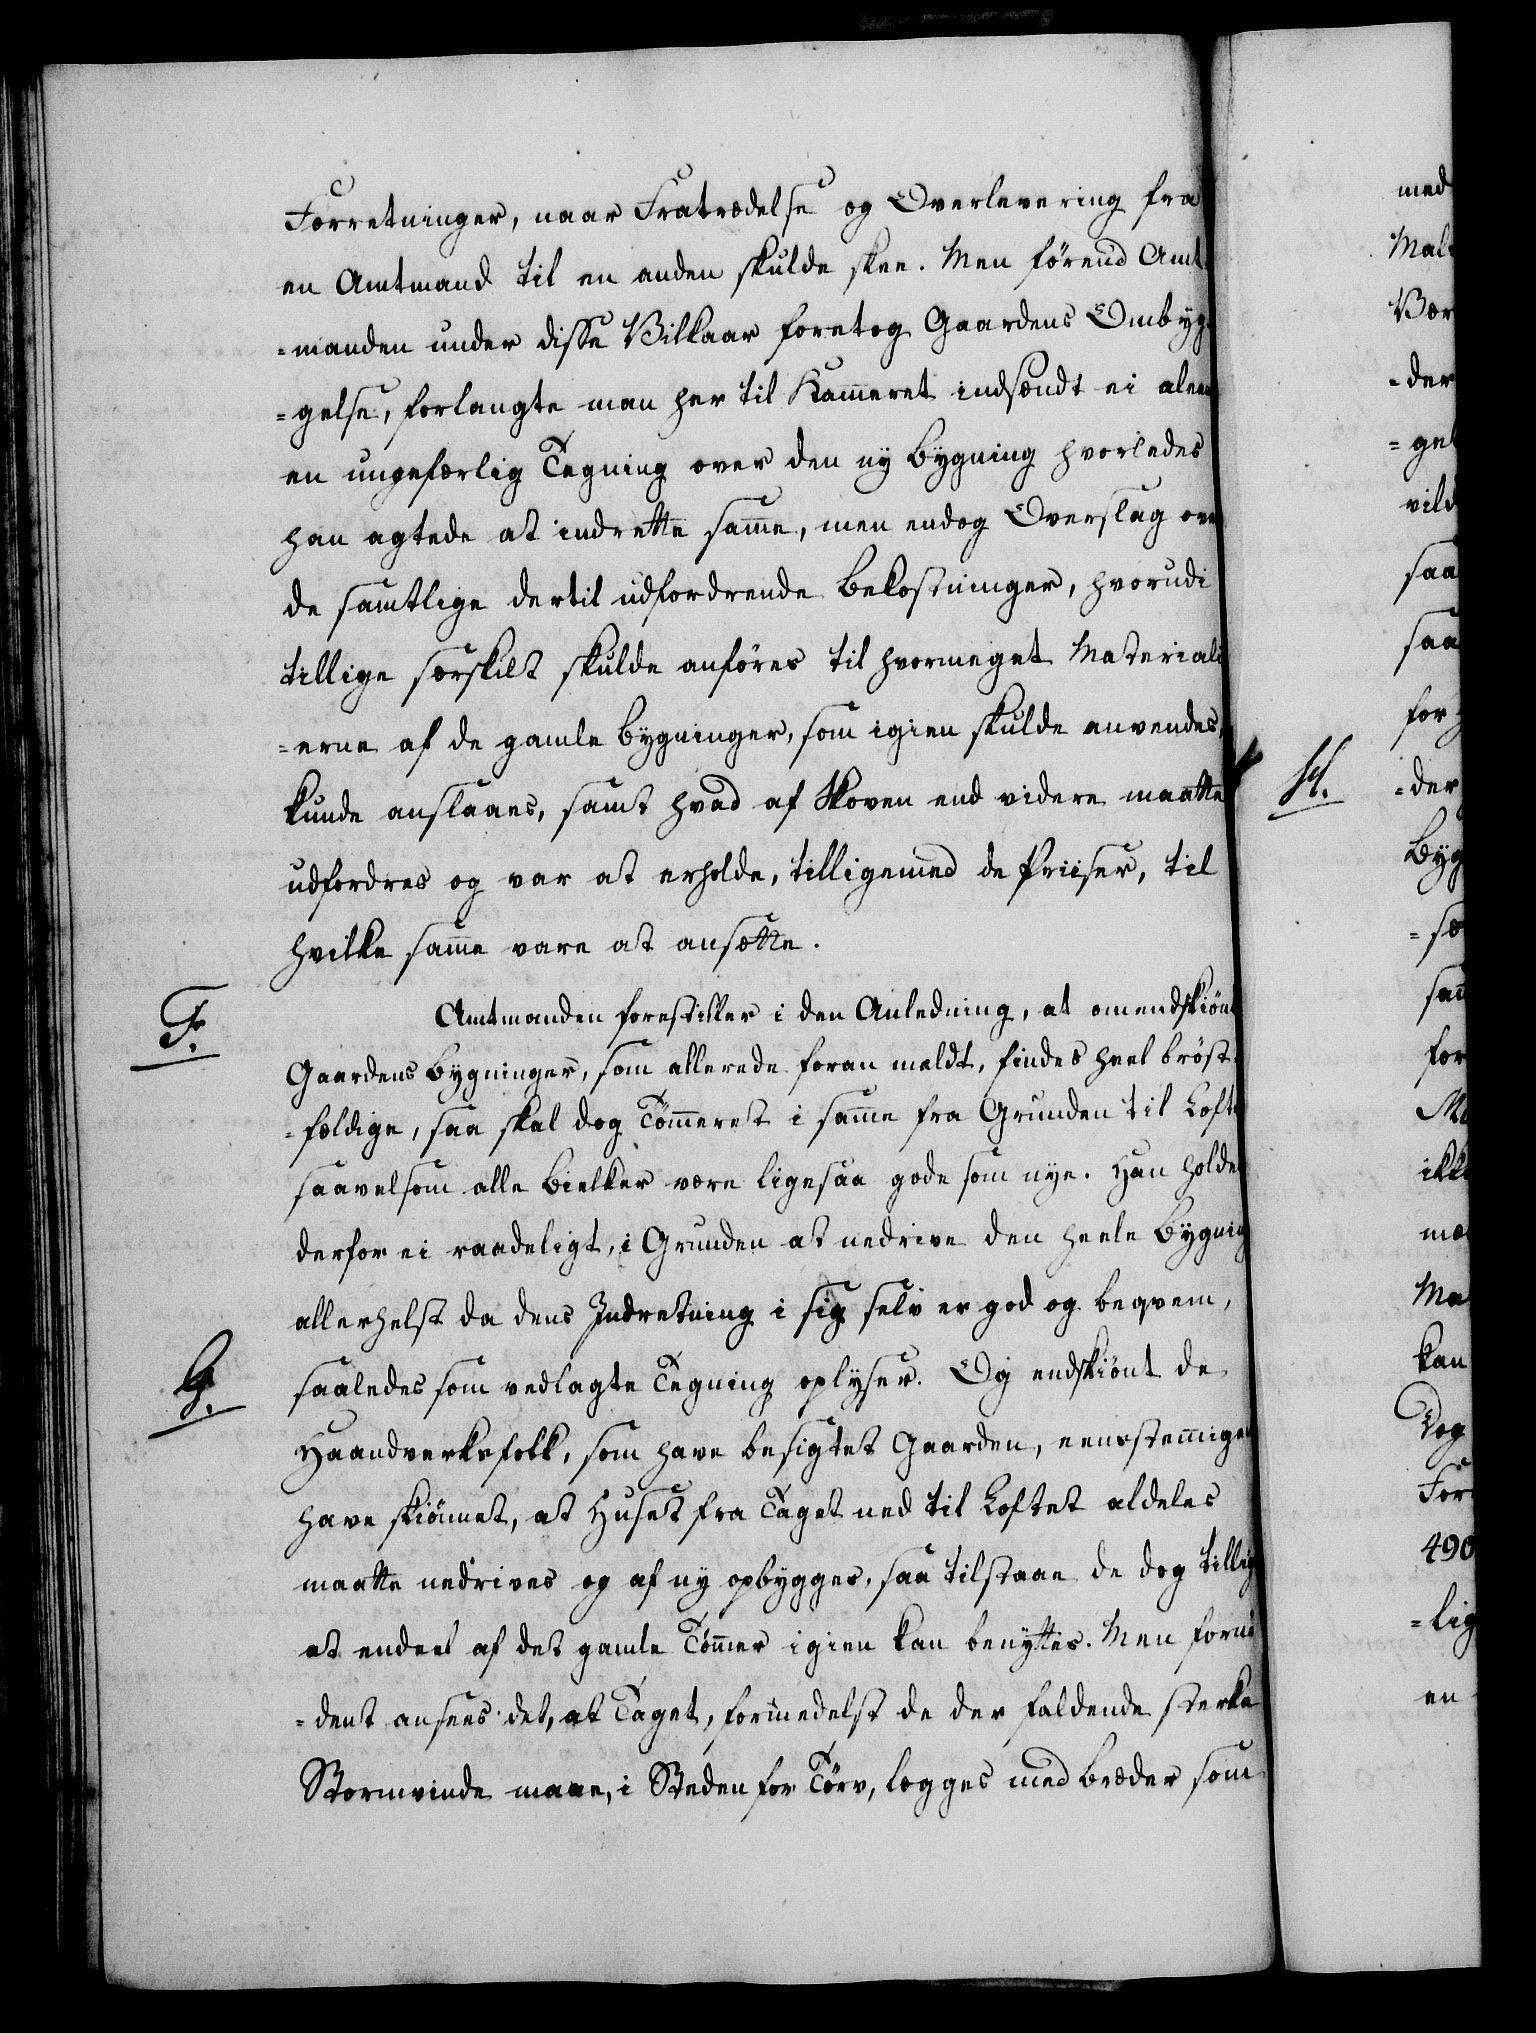 Forretninger, naar Fratrædelse og Overlevering fra
en Amtmand til en anden skulde skee. Men förend Amt-
=manden under disse Vilkaar foretog Gaardens Ombyg-
=gelse, forlangte man her til Kam̄eret indsendt ei aleene
en ungefærlig Tegning over den ny Bygning hvorledes
han agtede at indrette sam̄e, men endog Overslag over
de samtlige dertil udfordrende Bekostninger, hvorudi
tillige særskilt skulde anföres til hvormeget Materiali
=erne af de gamle Bygninger, som igien skulde anvendes,
kunde anslaaes, samt hvad af Skoven end videre maatte
udfordres og var at erholde, tilligemed de Priiser, til
hvilke sam̄e vare at ansætte.
F. Amtmanden forestiller i den Anledning, at omendskiönt
Gaardens Bygninger, som allerede foran meldt, findes heel bröst-
=fældige, saa skal dog Töm̄eret i sam̄e fra Grunden til Loftet
saavelsom alle Bielker være ligesaa gode som nye. Han holder
derfor ei raadeligt, i Grunden at nedrive den heele Bygning
allerhelst da dens Indretning i sig selv er god og beqvem,
G. saaledes som vedlagte Tegning oplyser. Og endskiönt de
Haandverksfolk, som have besigtet Gaarden, eensstem̄igen
have skiönnet, at Huset fra Taget ned til Loftet aldeles
maatte nedrives og af ny opbygges, saa tilstaae de dog tillige
at endeel af det gamle Töm̄er igien kan benyttes. Men fornö
=dent ansees det, at Taget, formedelst de der faldende sterke
Stormvinde maae, i Steden for Törv, lægges med Bræder som
med
Mal
Vær
=der
=gel
vild
saa
saa
for
H. =der
Byg
=sæ
sam̄
for
Ma
ikke
mæ
Ma
kan
Dog
For
490
=lig
en